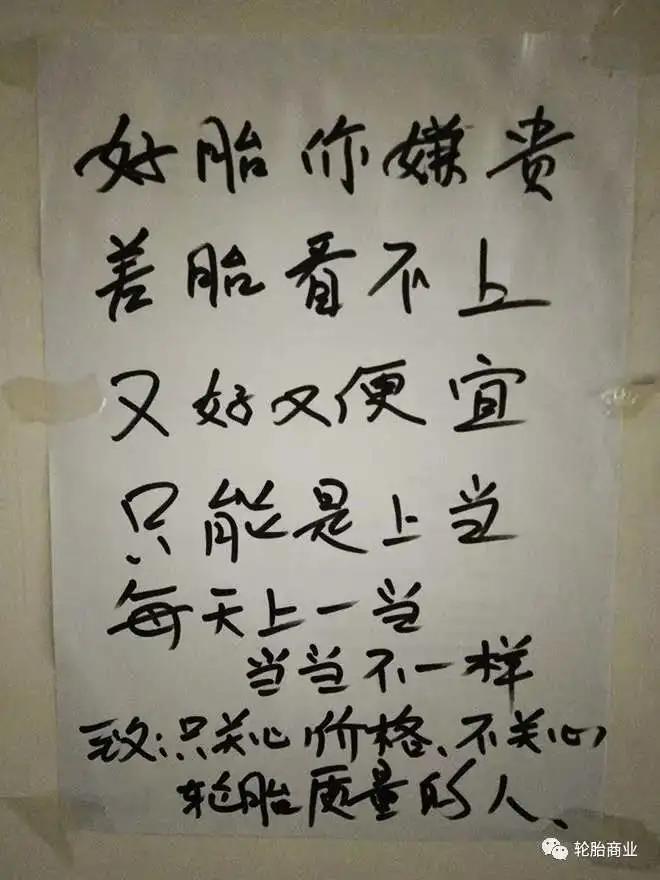 好胎你嫌贵
善胎看不上
又好又便宜
只能是上当
每天上一当
当当不一样
致:只关心价格、不关心
轮胎质量的人、
轮胎商业